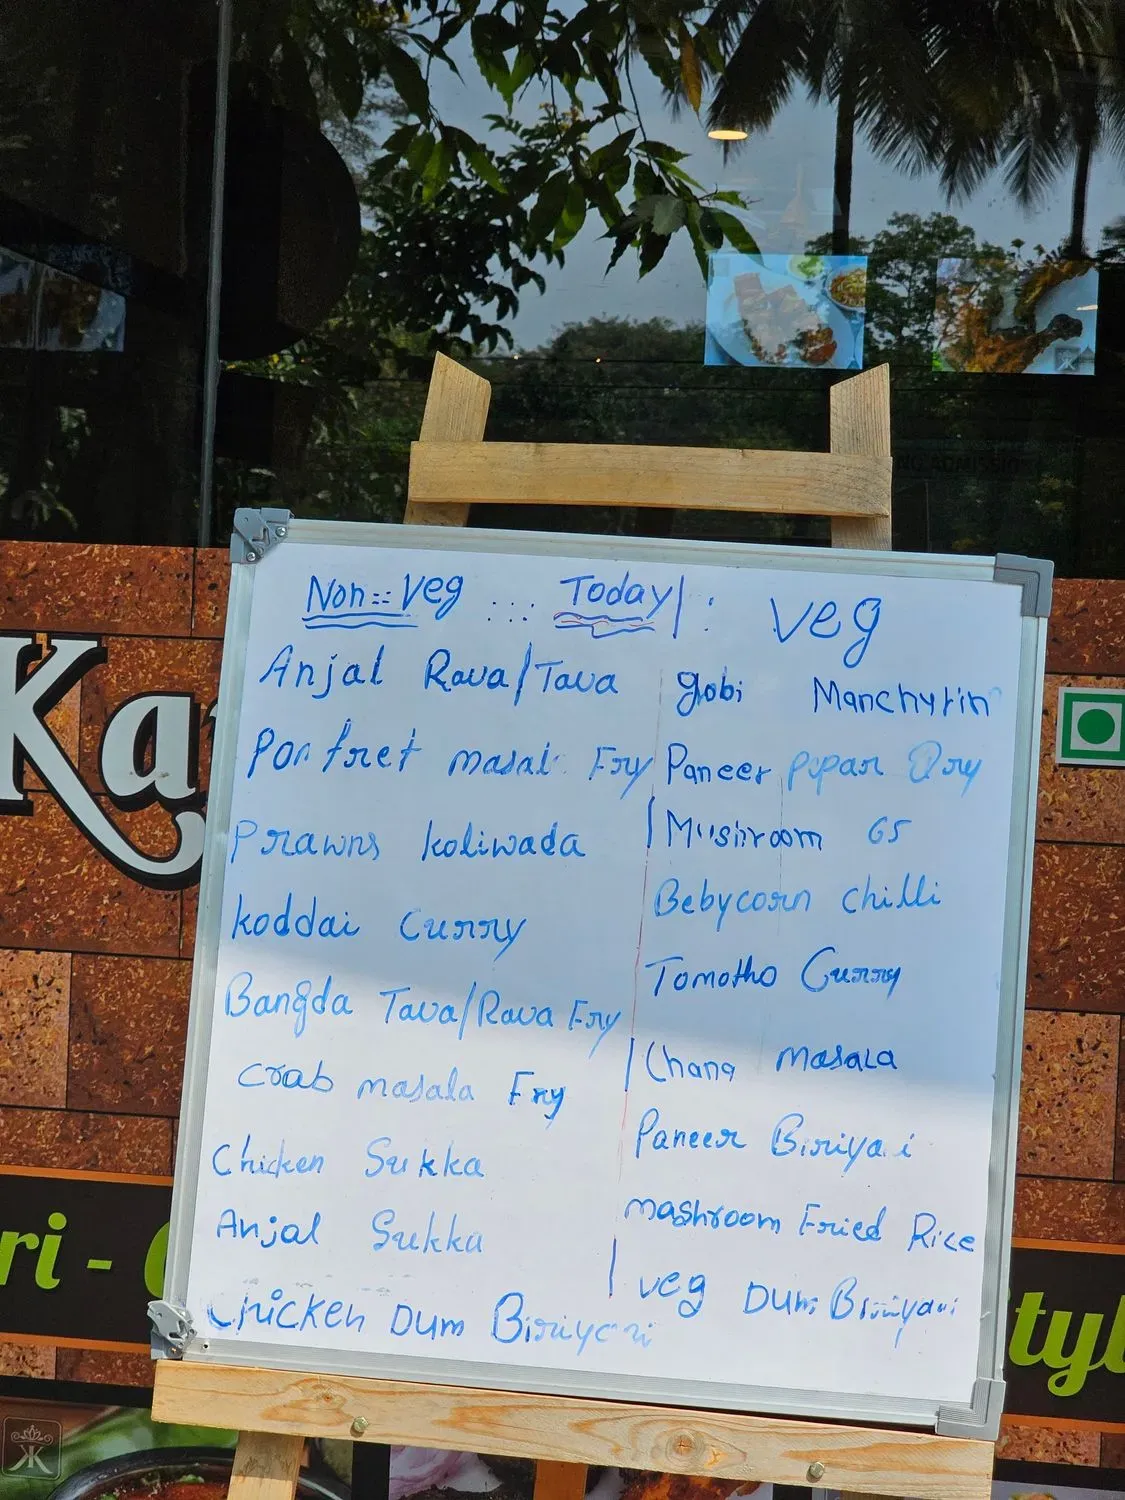 Non-Veg ... Today : Veg
Anjal Rava/Tava
Pomfret masal Fry
Prawns koliwada
koddai Curry
Bangda Tava/Rava Fry
Crab masala Fry
Chicken Sukka
Anjal Sukka
Chicken Dum Biriyani
gobi Manchyrin
Paneer pepar Dry
Mushroom 65
Bebycorn chilli
Tomotho Curry
Chana masala
Paneer Biriyani
mashroom Fried Rice
veg Dum Biriyani
Ka
ri -
tyl